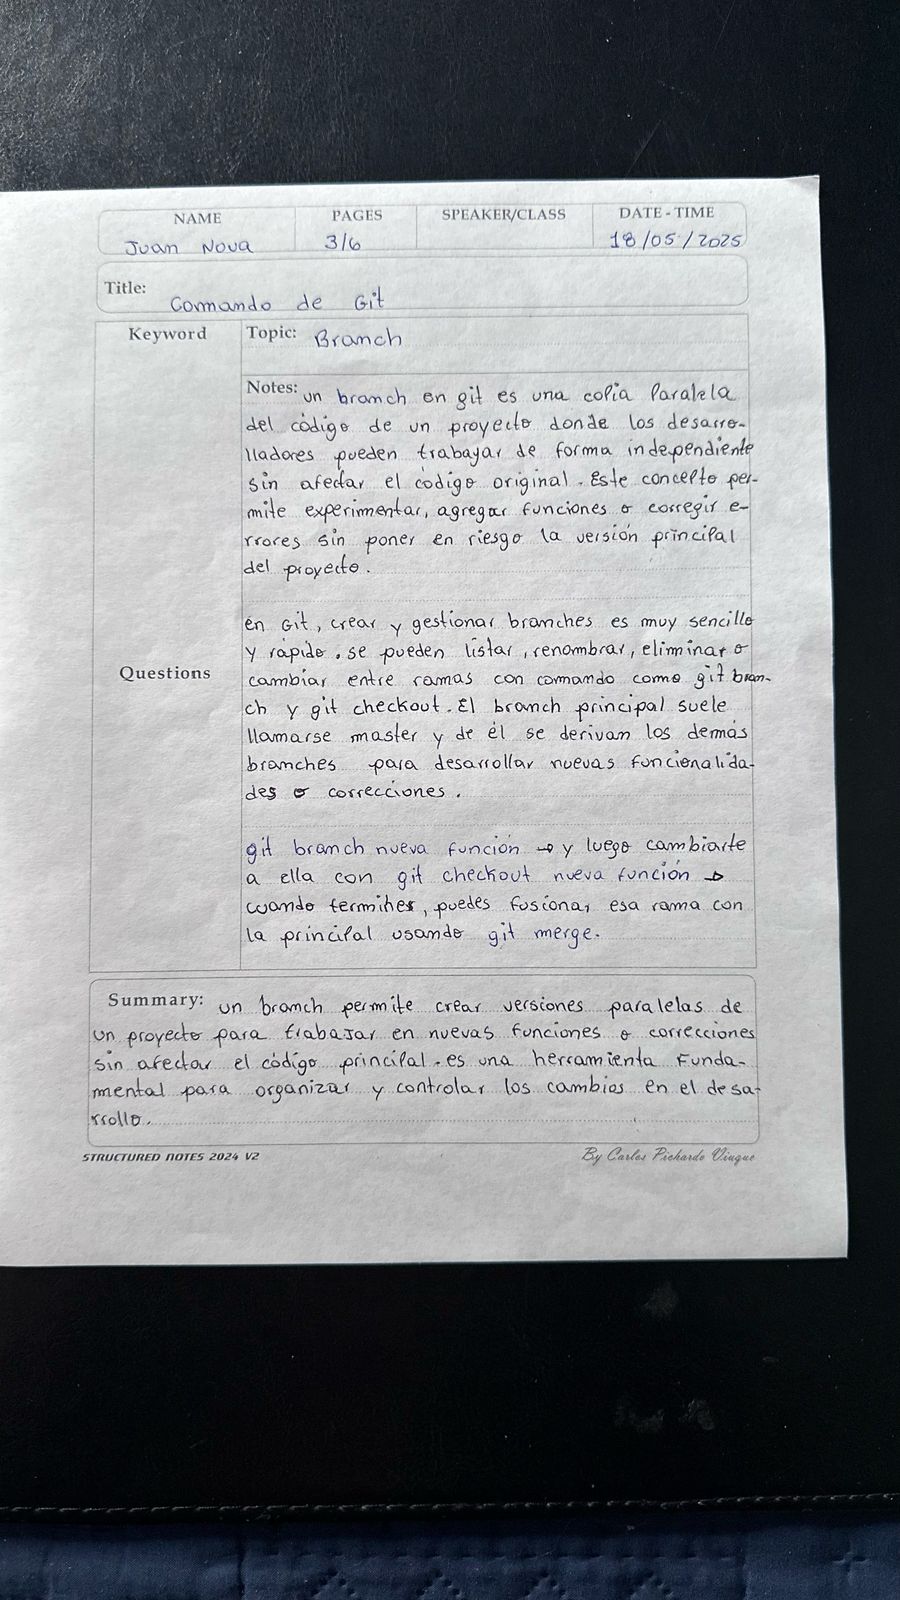 NAME PAGES SPEAKER/CLASS DATE - TIME
Juan Nova 3/6 18/05/2025
Title: Comando de Git
Keyword
Topic: Branch
Notes: un branch en git es una copia Paralela
del código de un proyecto donde los desarro-
lladores pueden trabayar de forma independiente
sin afectar el código original. Este concepto per-
mite experimentar, agregar funciones o corregir e-
rrores sin poner en riesgo la versión principal
del proyecto.
en Git, crear y gestionar branches es muy sencillo
y rápido. se pueden listar, renombrar, eliminar o
Questions
cambiar entre ramas con comando como git bran-
ch y git checkout. El branch principal suele
llamarse master y de él se derivan los demás
branches para desarrollar nuevas funcionalida-
des o correcciones.
git branch nueva función → y luego cambiarte
a ella con git checkout nueva función →
cuando termines, puedes fusionar esa rama con
la principal usando git merge.
Summary: un branch permite crear versiones paralelas de
un proyecto para trabajar en nuevas funciones o correcciones
sin afectar el código principal. es una herramienta Funda-
mental para organizar y controlar los cambios en el desa-
rrollo.
STRUCTURED NOTES 2024 V2 By Carlos Pichardo Viuque